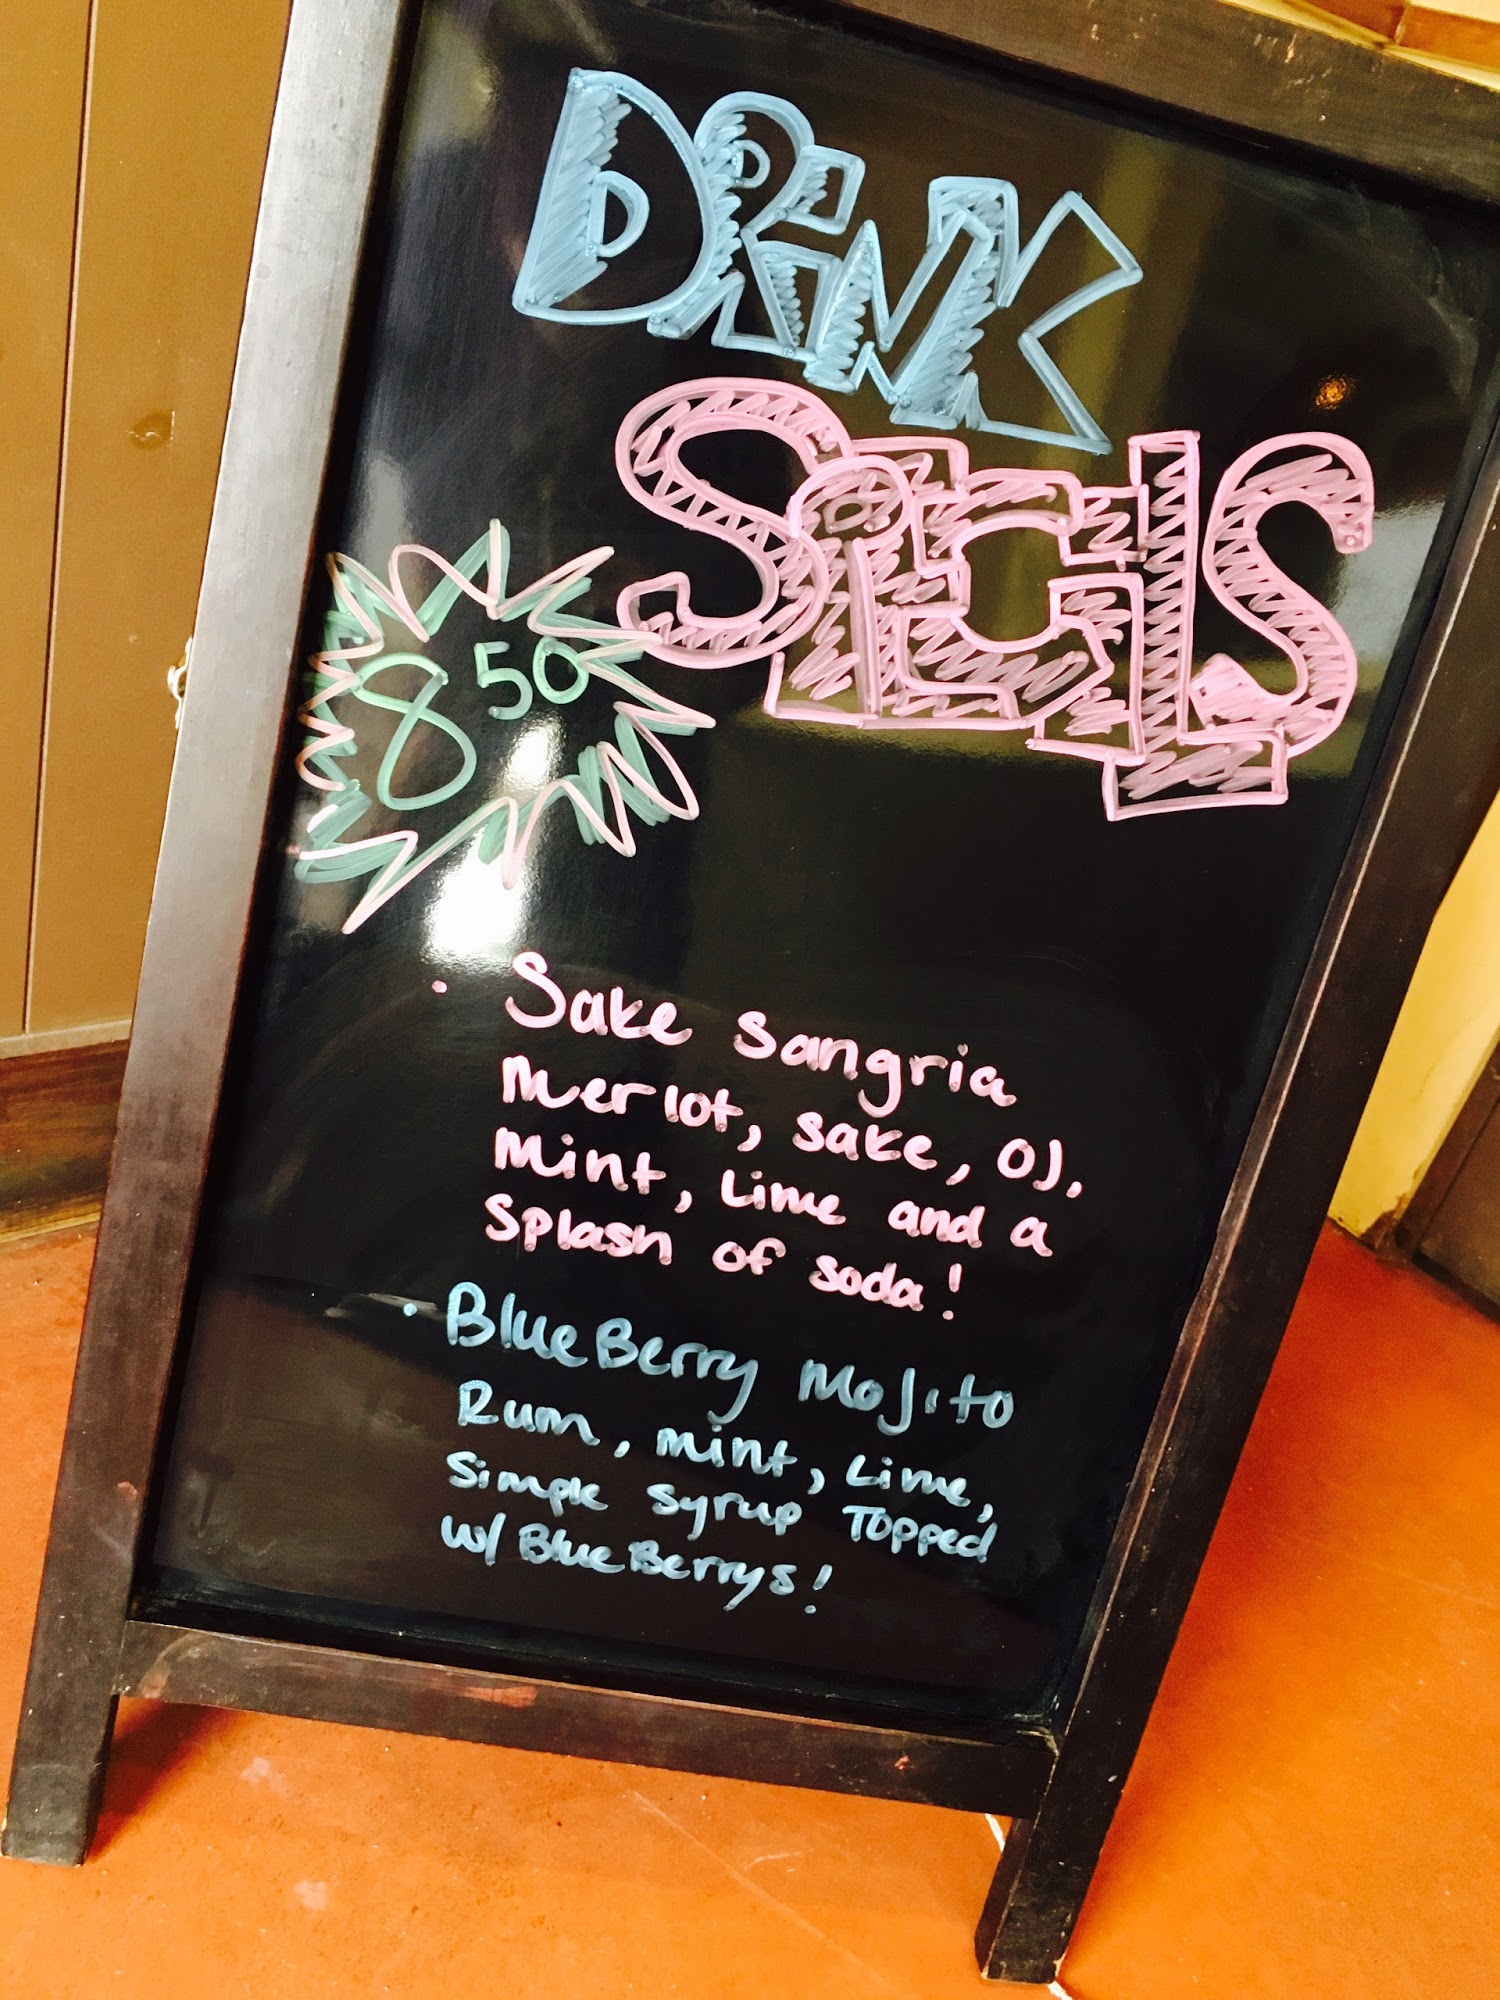 DRiNK
SPECiAlS
8 50
• Sake Sangria
Merlot, sake, OJ,
Mint, Lime and a
Splash of soda!
• BlueBerry Mojito
Rum, mint, Lime,
Simple Syrup Topped
w/ BlueBerrys!